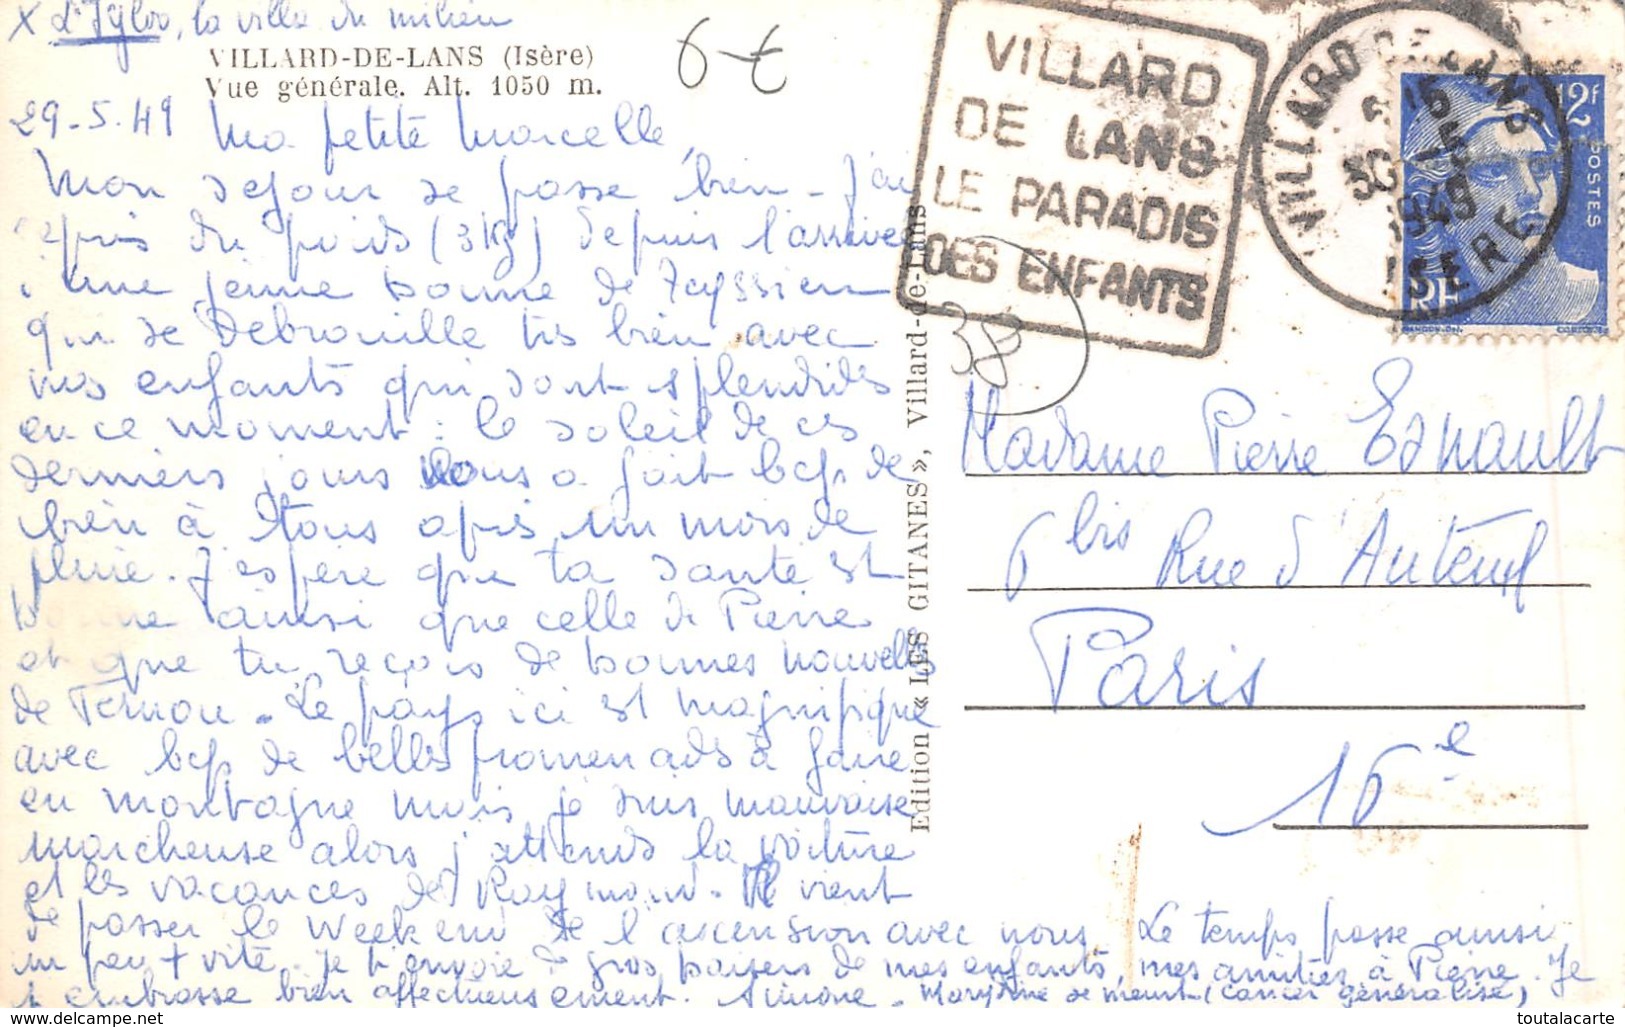 X L'Igloo, la villa du milieu
VILLARD-DE-LANS (Isère)
Vue générale. Alt. 1050 m.
6 €
29-5.49 Ma petite Marcelle,
Mon séjour se passe bien - j'ai
repris du poids (3kg) depuis l'arrivée
d'une jeune bonne de
qui se débrouille très bien avec
nos enfants qui sont splendides
en ce moment : le soleil de ces
derniers jours nous a fait bcp de
bien à tous après un mois de
pluie. J'espère que ta santé est
bonne ainsi que celle de Pierre
et que tu reçois de bonnes nouvelles
de . Le pays ici est magnifique
avec bcp de belles promenades à faire
en montagne mais je suis mauvaise
marcheuse alors j'attends la voiture
et les vacances de Raymond. Il vient
de passer le Week end de l'ascension avec nous. Le temps passe ainsi
un peu + vite. Je t'envoie de gros baisers de mes enfants, mes amitiés à Pierre. Je
t'embrasse bien affectueusement. Simone - se meurt (cancer généralisé)
Edition « LES GITANES », Villard-de-Lans
VILLARD
DE LANS
LE PARADIS
DES ENFANTS
VILLARD DE LANS
15
1949
ISERE
12F
POSTES
RF
GANDON.DEL.
38
Madame Pierre Esnault
6 bis Rue d'Auteuil
Paris
16e
toutalacarte